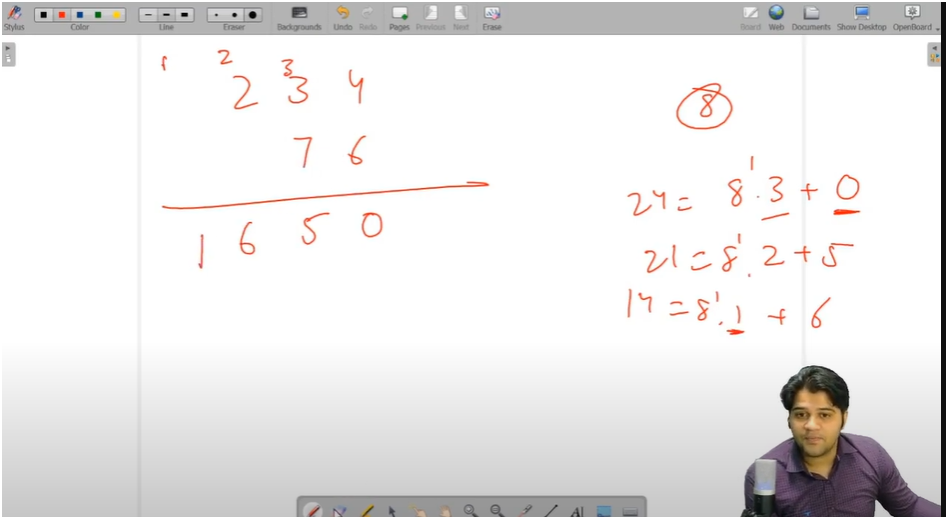 Stylus Color Line Eraser Backgrounds Undo Redo Pages Previous Next Erase Board Web Documents Show Desktop OpenBoard
1 2 3
2 3 4
7 6
1 6 5 0
8
24 = 8¹.3 + 0
21 = 8¹.2 + 5
14 = 8¹.1 + 6
A